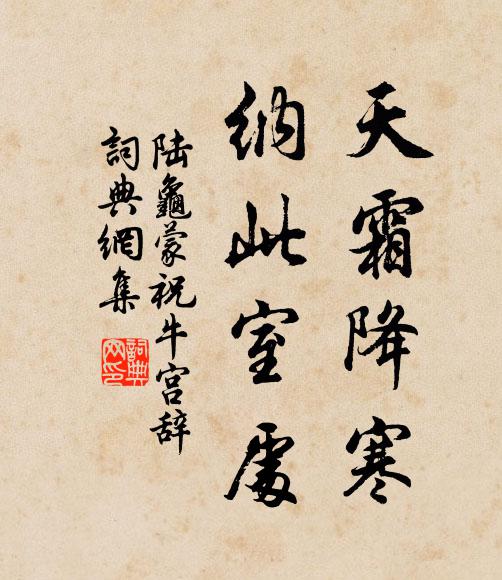 天霜降寒
納此室處
陆龜蒙祝牛宫辞
詞典網集
詞典
网印